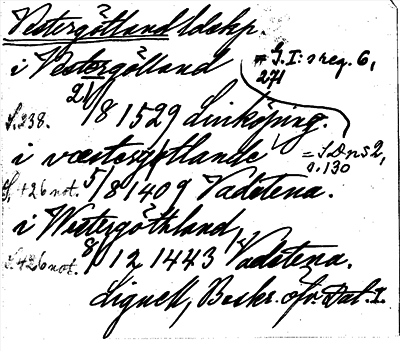 Vestergötland ldskp.
i Vestergötland # G. I: s reg. 6, 271
S. 238. 21/8 1529 Linköping.
i væstergøtlande = S D ns 2, s. 130
S. 426 not. 5/8 1409 Vadstena.
i Westergöthland,
S. 426 not. 8/12 1443 Vadstena.
Lignell, Beskr. öfv. Dal. I.